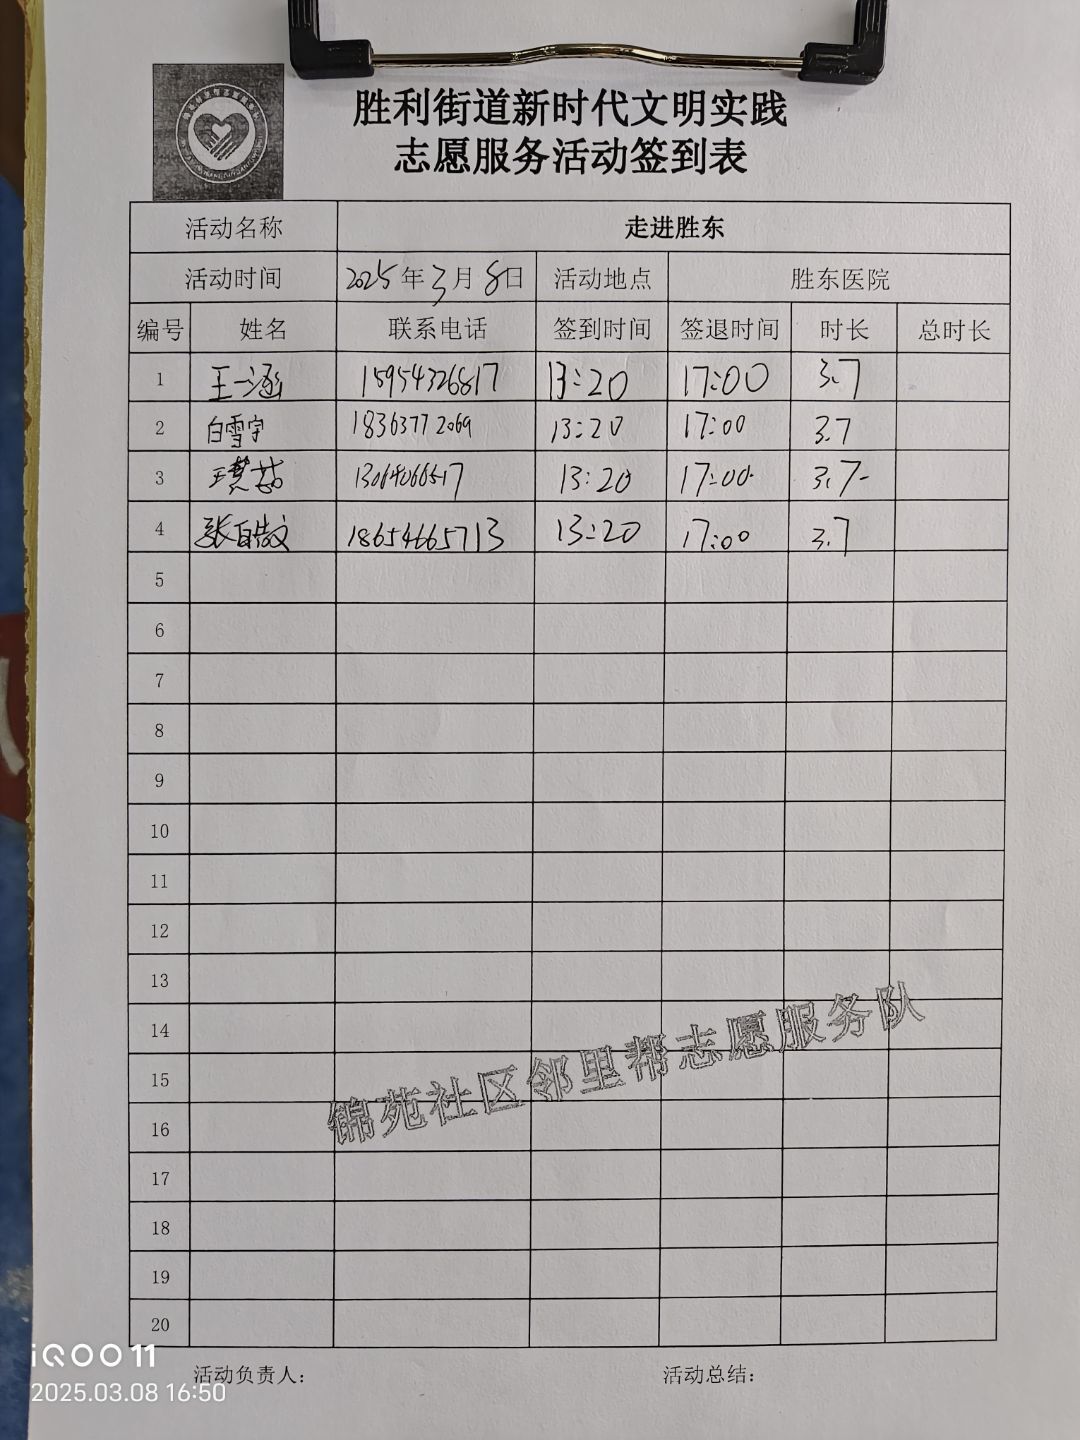 胜利街道新时代文明实践
志愿服务活动签到表
活动名称 走进胜东
活动时间 2025年3月8日 活动地点 胜东医院
编号 姓名 联系电话 签到时间 签退时间 时长 总时长
1 王一涵 15954326817 13:20 17:00 3.7
2 白雪宇 18363772069 13:20 17:00 3.7
3 13064066517 13:20 17:00 3.7
4 张百皓文 18654665713 13:20 17:00 3.7
5
6
7
8
9
10
11
12
13
14
15
16
17
18
19
20
锦苑社区邻里帮志愿服务队
活动负责人： 活动总结：
iQOO 11
2025.03.08 16:50